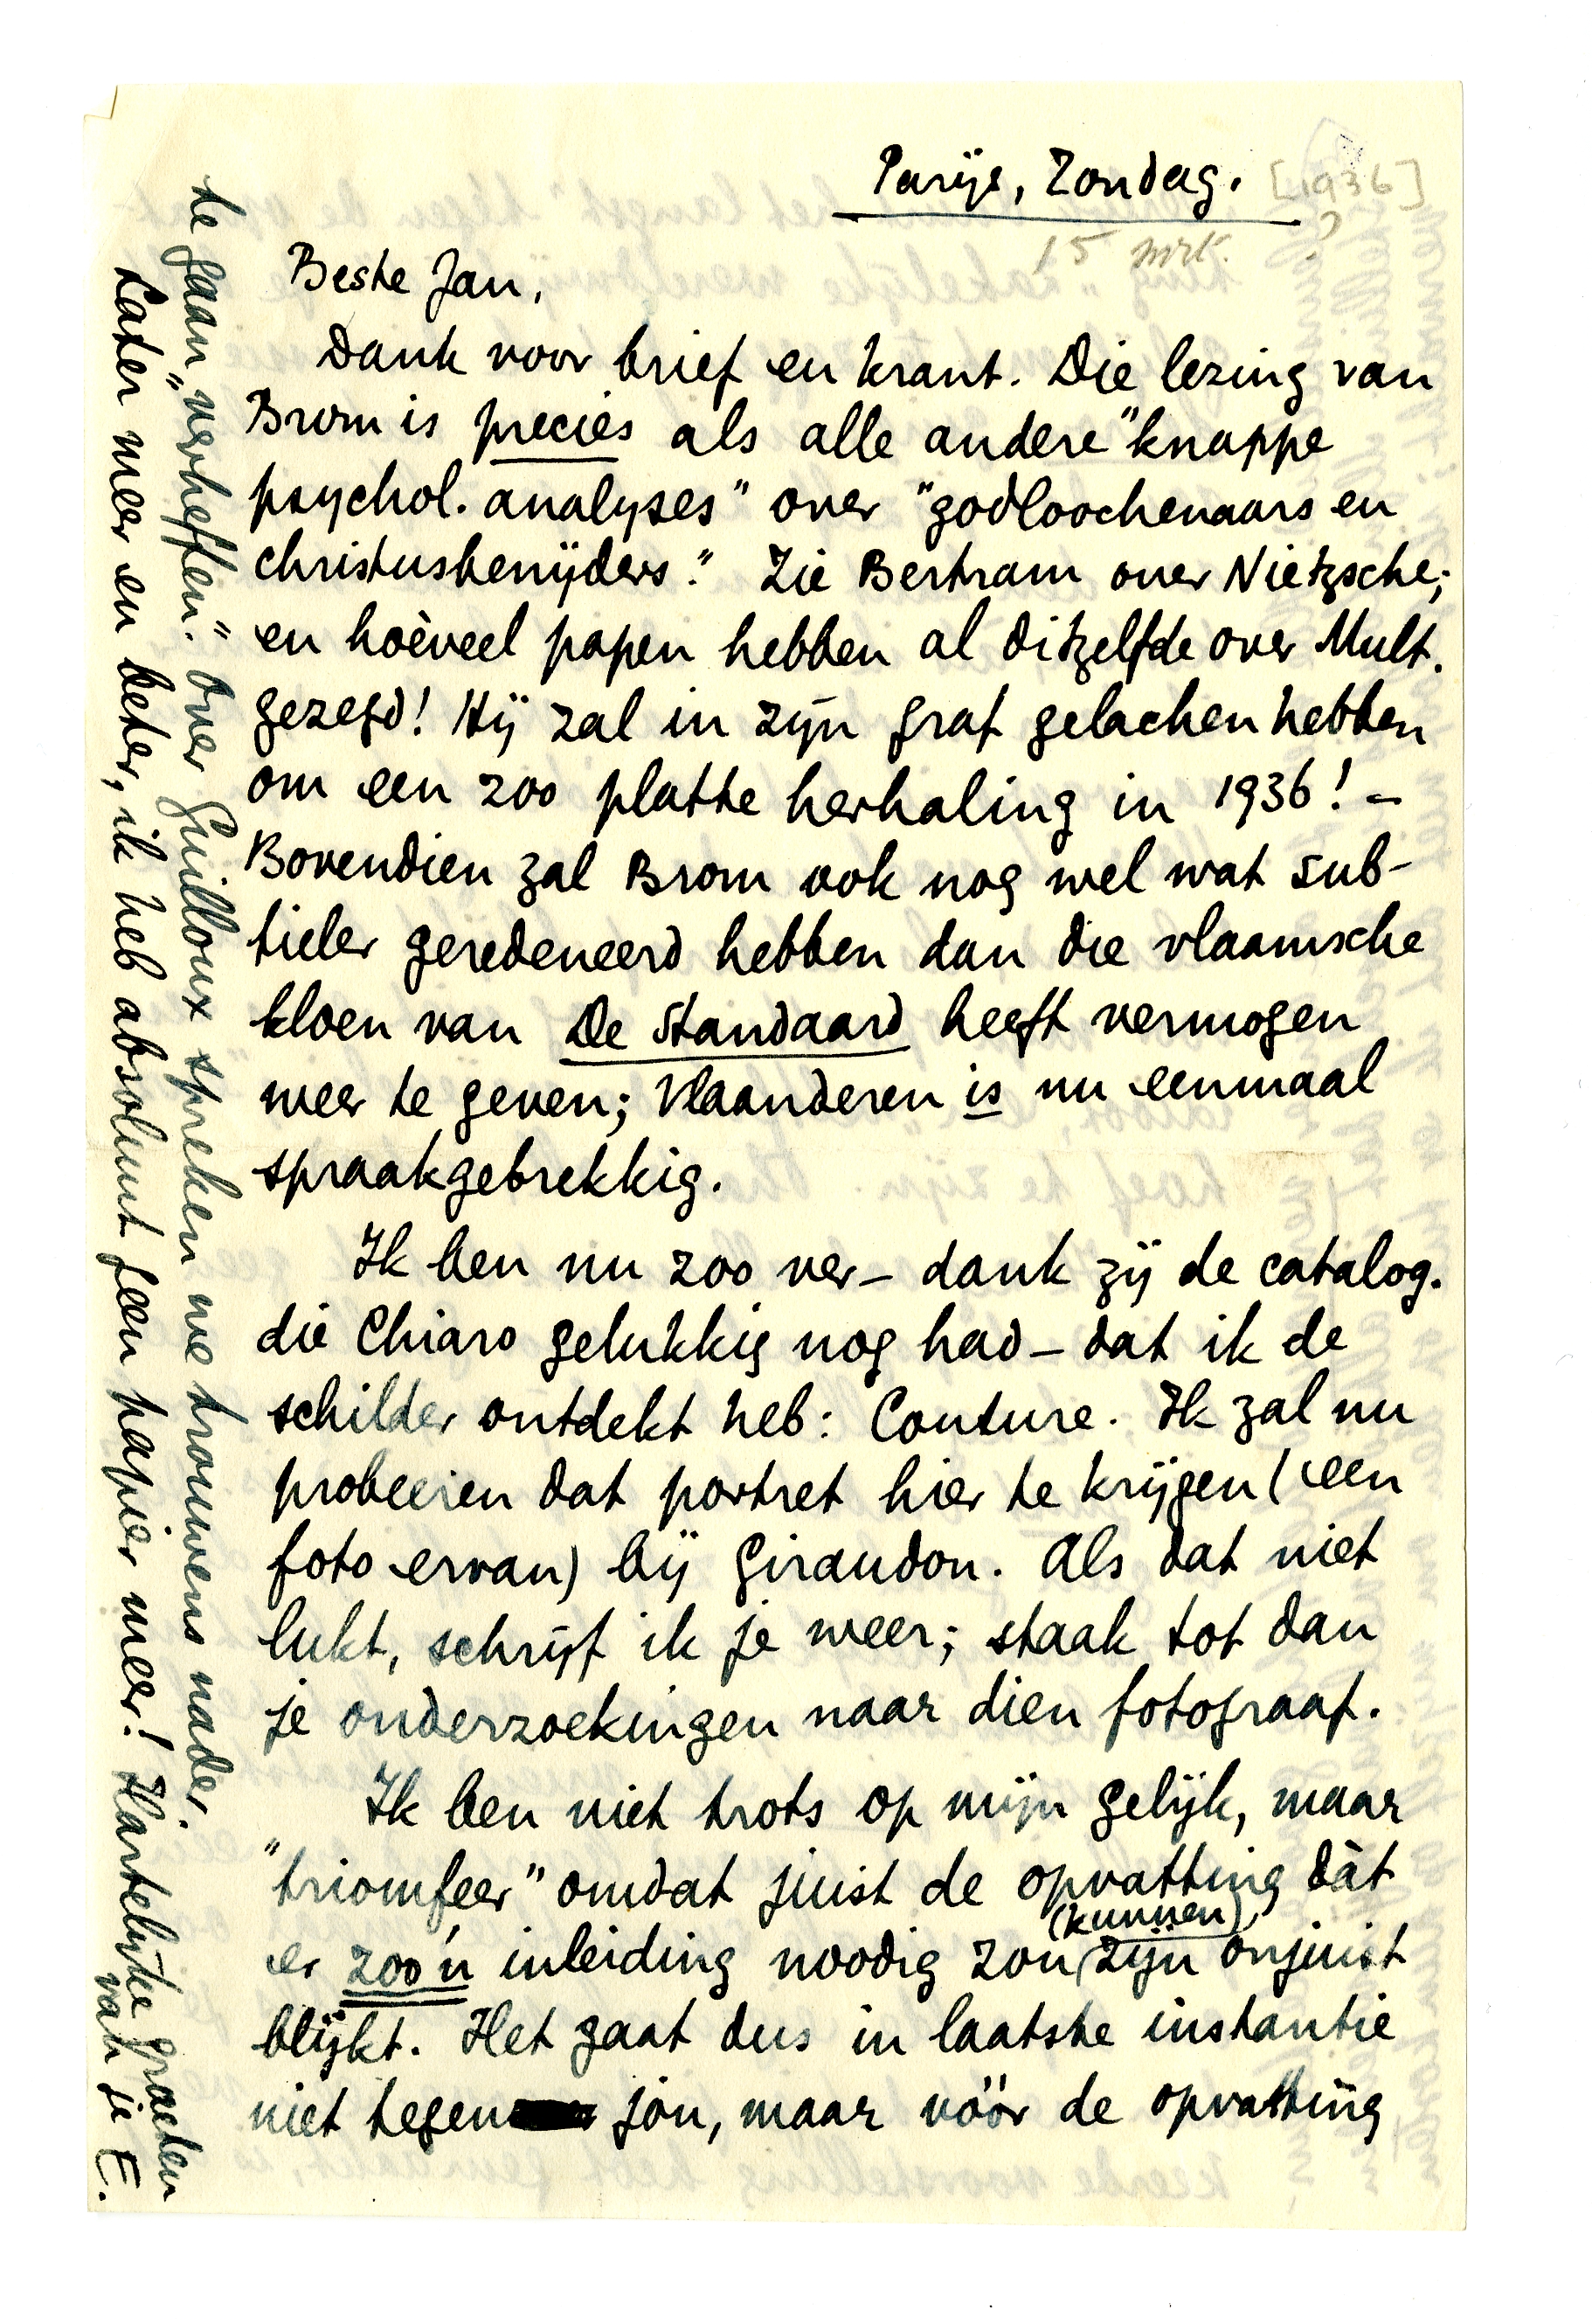 Parijs, Zondag. [1936]
15 mrt. ?
Beste Jan,
Dank voor brief en krant. Die lezing van
Brom is precies als alle andere "knappe
psychol. analyses" over "godloochenaars en
christusbenijders." Zie Bertram over Nietzsche;
en hoèveel papen hebben al ditzelfde over Mult.
gezegd! Hij zal in zijn graf gelachen hebben
om een zoo platte herhaling in 1936! –
Bovendien zal Brom ook nog wel wat sub-
tieler geredeneerd hebben dan die vlaamsche
kloen van De Standaard heeft vermogen
weer te geven; Vlaanderen is nu eenmaal
spraakgebrekkig.
Ik ben nu zoo ver – dank zij de catalog.
die Chiaro gelukkig nog had – dat ik de
schilder ontdekt heb: Couture. Ik zal nu
probeeren dat portret hier te krijgen (een
foto ervan) bij Giraudon. Als dat niet
lukt, schrijf ik je weer; staak tot dan
je onderzoekingen naar dien fotograaf.
Ik ben niet trots op mijn gelijk, maar
"triomfeer" omdat juist de opvatting dàt
er zoo'n inleiding noodig zou (kunnen) zijn onjuist
blijkt. Het gaat dus in laatste instantie
niet tegen jou, maar vóór de opvatting
te gaan "verheffen." Over Guilloux spreken we trouwens nader.
Later meer en beter, ik heb absoluut geen papier meer! Hartelijke groeten
van je E.